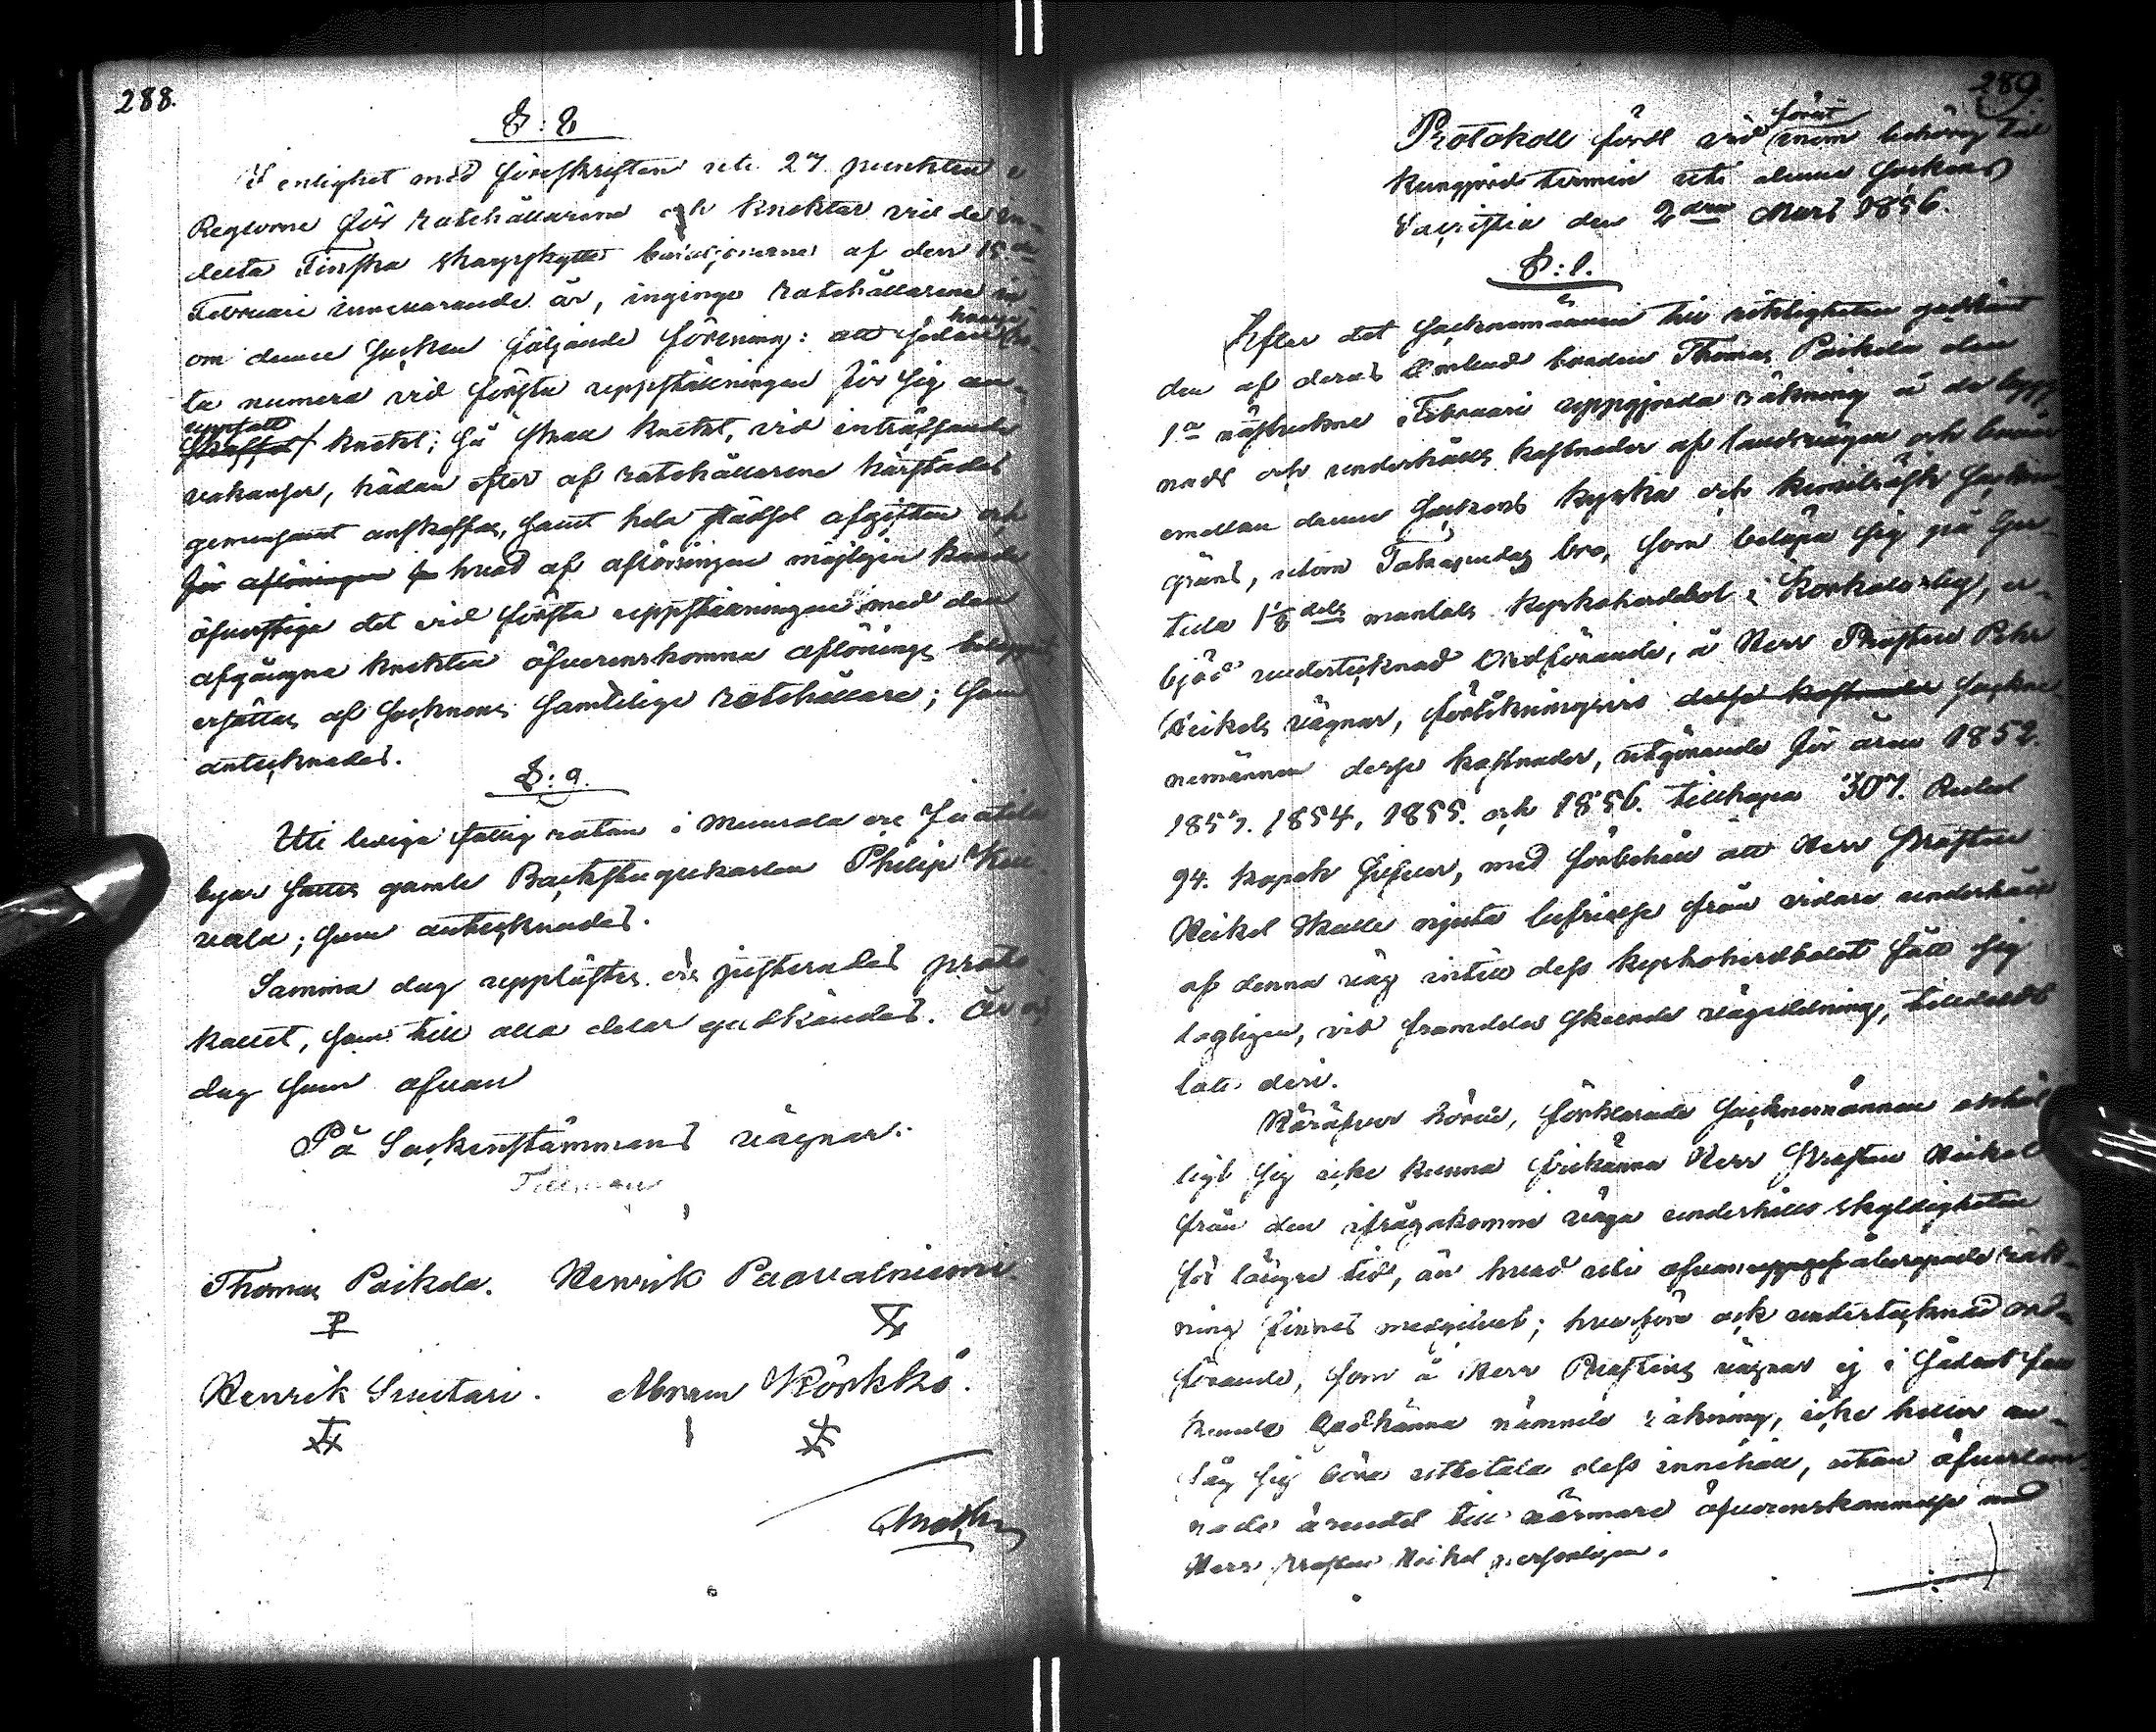 288.
§: 8
I enlighet med föreskriften uti 27 punkten i
Reglorne för rotehållarene och knektar vid de in-
delta Finska skarpskytte bataljonerne af den 15de
Februari innevarande år, ingingo rotehållarene in
om denna Socken följande förening: att sedan hvarje ro-
ta numera vid första uppställningen för sig an-
skaffat uppstält knekt; så skall knekt, vid inträffande
vakanser, hädan efter af rotehållarene härstädes
gemensamt anskaffas, samt hela städsel afgiften och
för aflöningen hvad af aflöningen möjligen kunde
öfverstiga det vid första uppställningen med den
afgångne knekten öfverenskomna aflönings beloppet
ersättas af Socknens samtelige rotehållare; som
antecknades.
§: 9.
Uti lediga fattig rotan i Munsala
byar sattes gamle Backstugukarlen Philip
vala; som antecknades.
Samma dag upplästes och justerades proto-
kollet, som till alla delar godkändes. År och
dag som ofvan
På Sockenstämmans vägnar:
Thomas Poikela. Henrik Paavalniemi.
Henrik Suutari. Abram Körkkö.
289.
Protokoll fördt vid förut inom behörig tid
kungjord termin uti denna Sockens
Sacristia den 2dra Mars 1856.
§: 1.
Efter det Socknemännen till riktigheten godkänt
den af deras ombud bonden Thomas Poikela den
1a nästvekne Februari uppgjorda räkning å de bygg-
nads och underhålls kostnader af landsvägen och broar
emellan denna Sockens kyrka och Socken
gräns, utom bro, som belöpa sig på
1/8 dels mantals kyrkoherdebol i Korkalo by, er-
bjöd undertecknad Ordförande, å Herr Prosten Pehr
Heikels vägnar, desse kostnader Sockne-
nemännen desse kostnader, utgörande för åren 1852.
1853. 1854, 1855. och 1856. tillhopa 307. Rubel
94. kopek Silfver, med förbehåll att Herr Prosten
Heikel skulle njuta befrielse från vidare underhåll
af denna väg intill dess kyrkoherdebolet fått sig
lagligen, vid framdeles skeende vägdelning, tilldeldt
lott deri.
Häröfver hörde, förklarade Socknemännen enhäl-
ligt sig icke kunna frikänna Herr Prosten Heikel
från den ifrågakomne väga underhålls skyldigheten
för längre tid, än hvad uti ofvan åberopade räk-
ning finnes medgifvet; hvarföre ock undertecknad ord-
förande, som å Herr Prostens vägnar ej i sådant fall
kunde godkänna nämnde räkning, icke heller an-
såg sig böra utbetala dess innehåll, utan öfverlem-
nade ärendet till närmare öfverenskommelse med
Herr Prosten Heikel personligen.